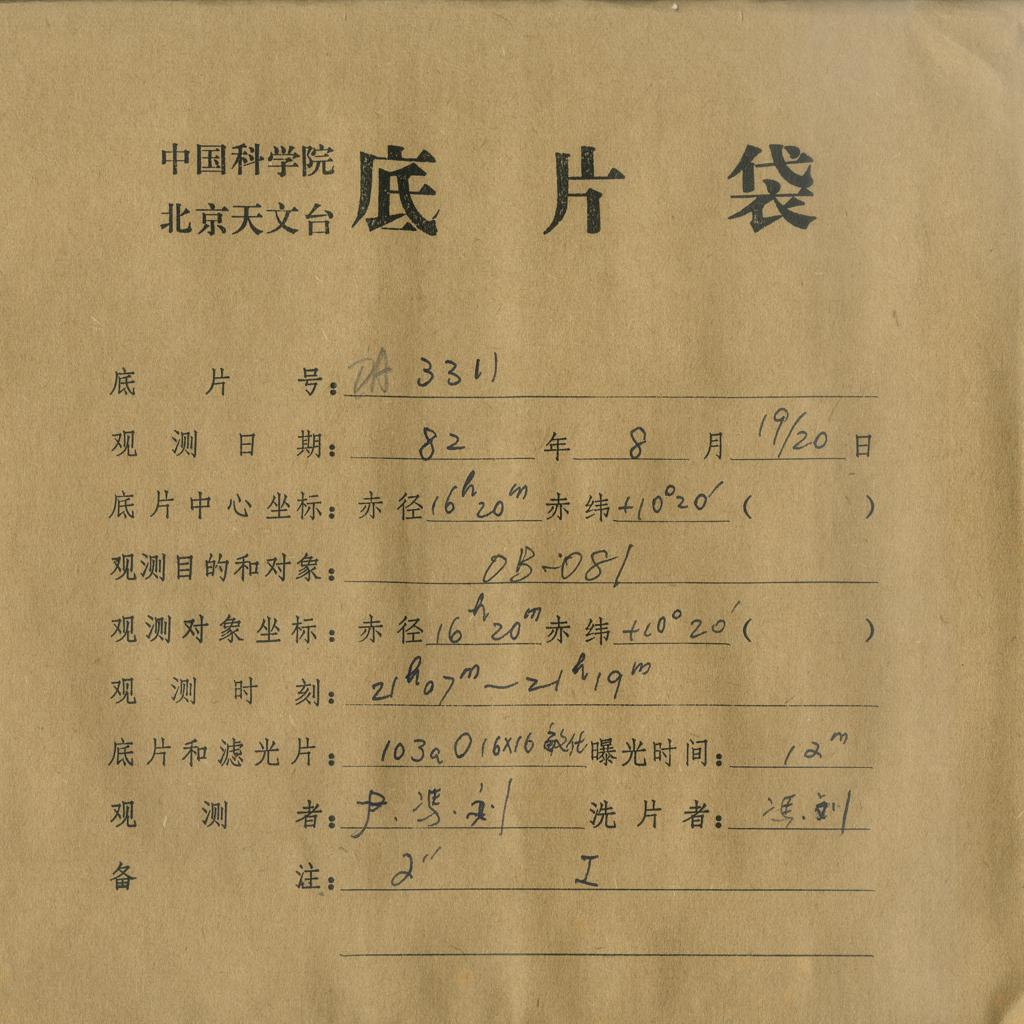 中国科学院
北京天文台
底片袋
底片号：3311
观测日期：82年8月19/20日
底片中心坐标：赤径16ʰ20ᵐ赤纬+10°20′（ ）
观测目的和对象：OB-081
观测对象坐标：赤径16ʰ20ᵐ赤纬+10°20′（ ）
观测时刻：21ʰ07ᵐ—21ʰ19ᵐ
底片和滤光片：103aO 16×16 敏化 曝光时间：12ᵐ
观测者：尹.冯.刘 洗片者：冯.刘
备注：2″ I